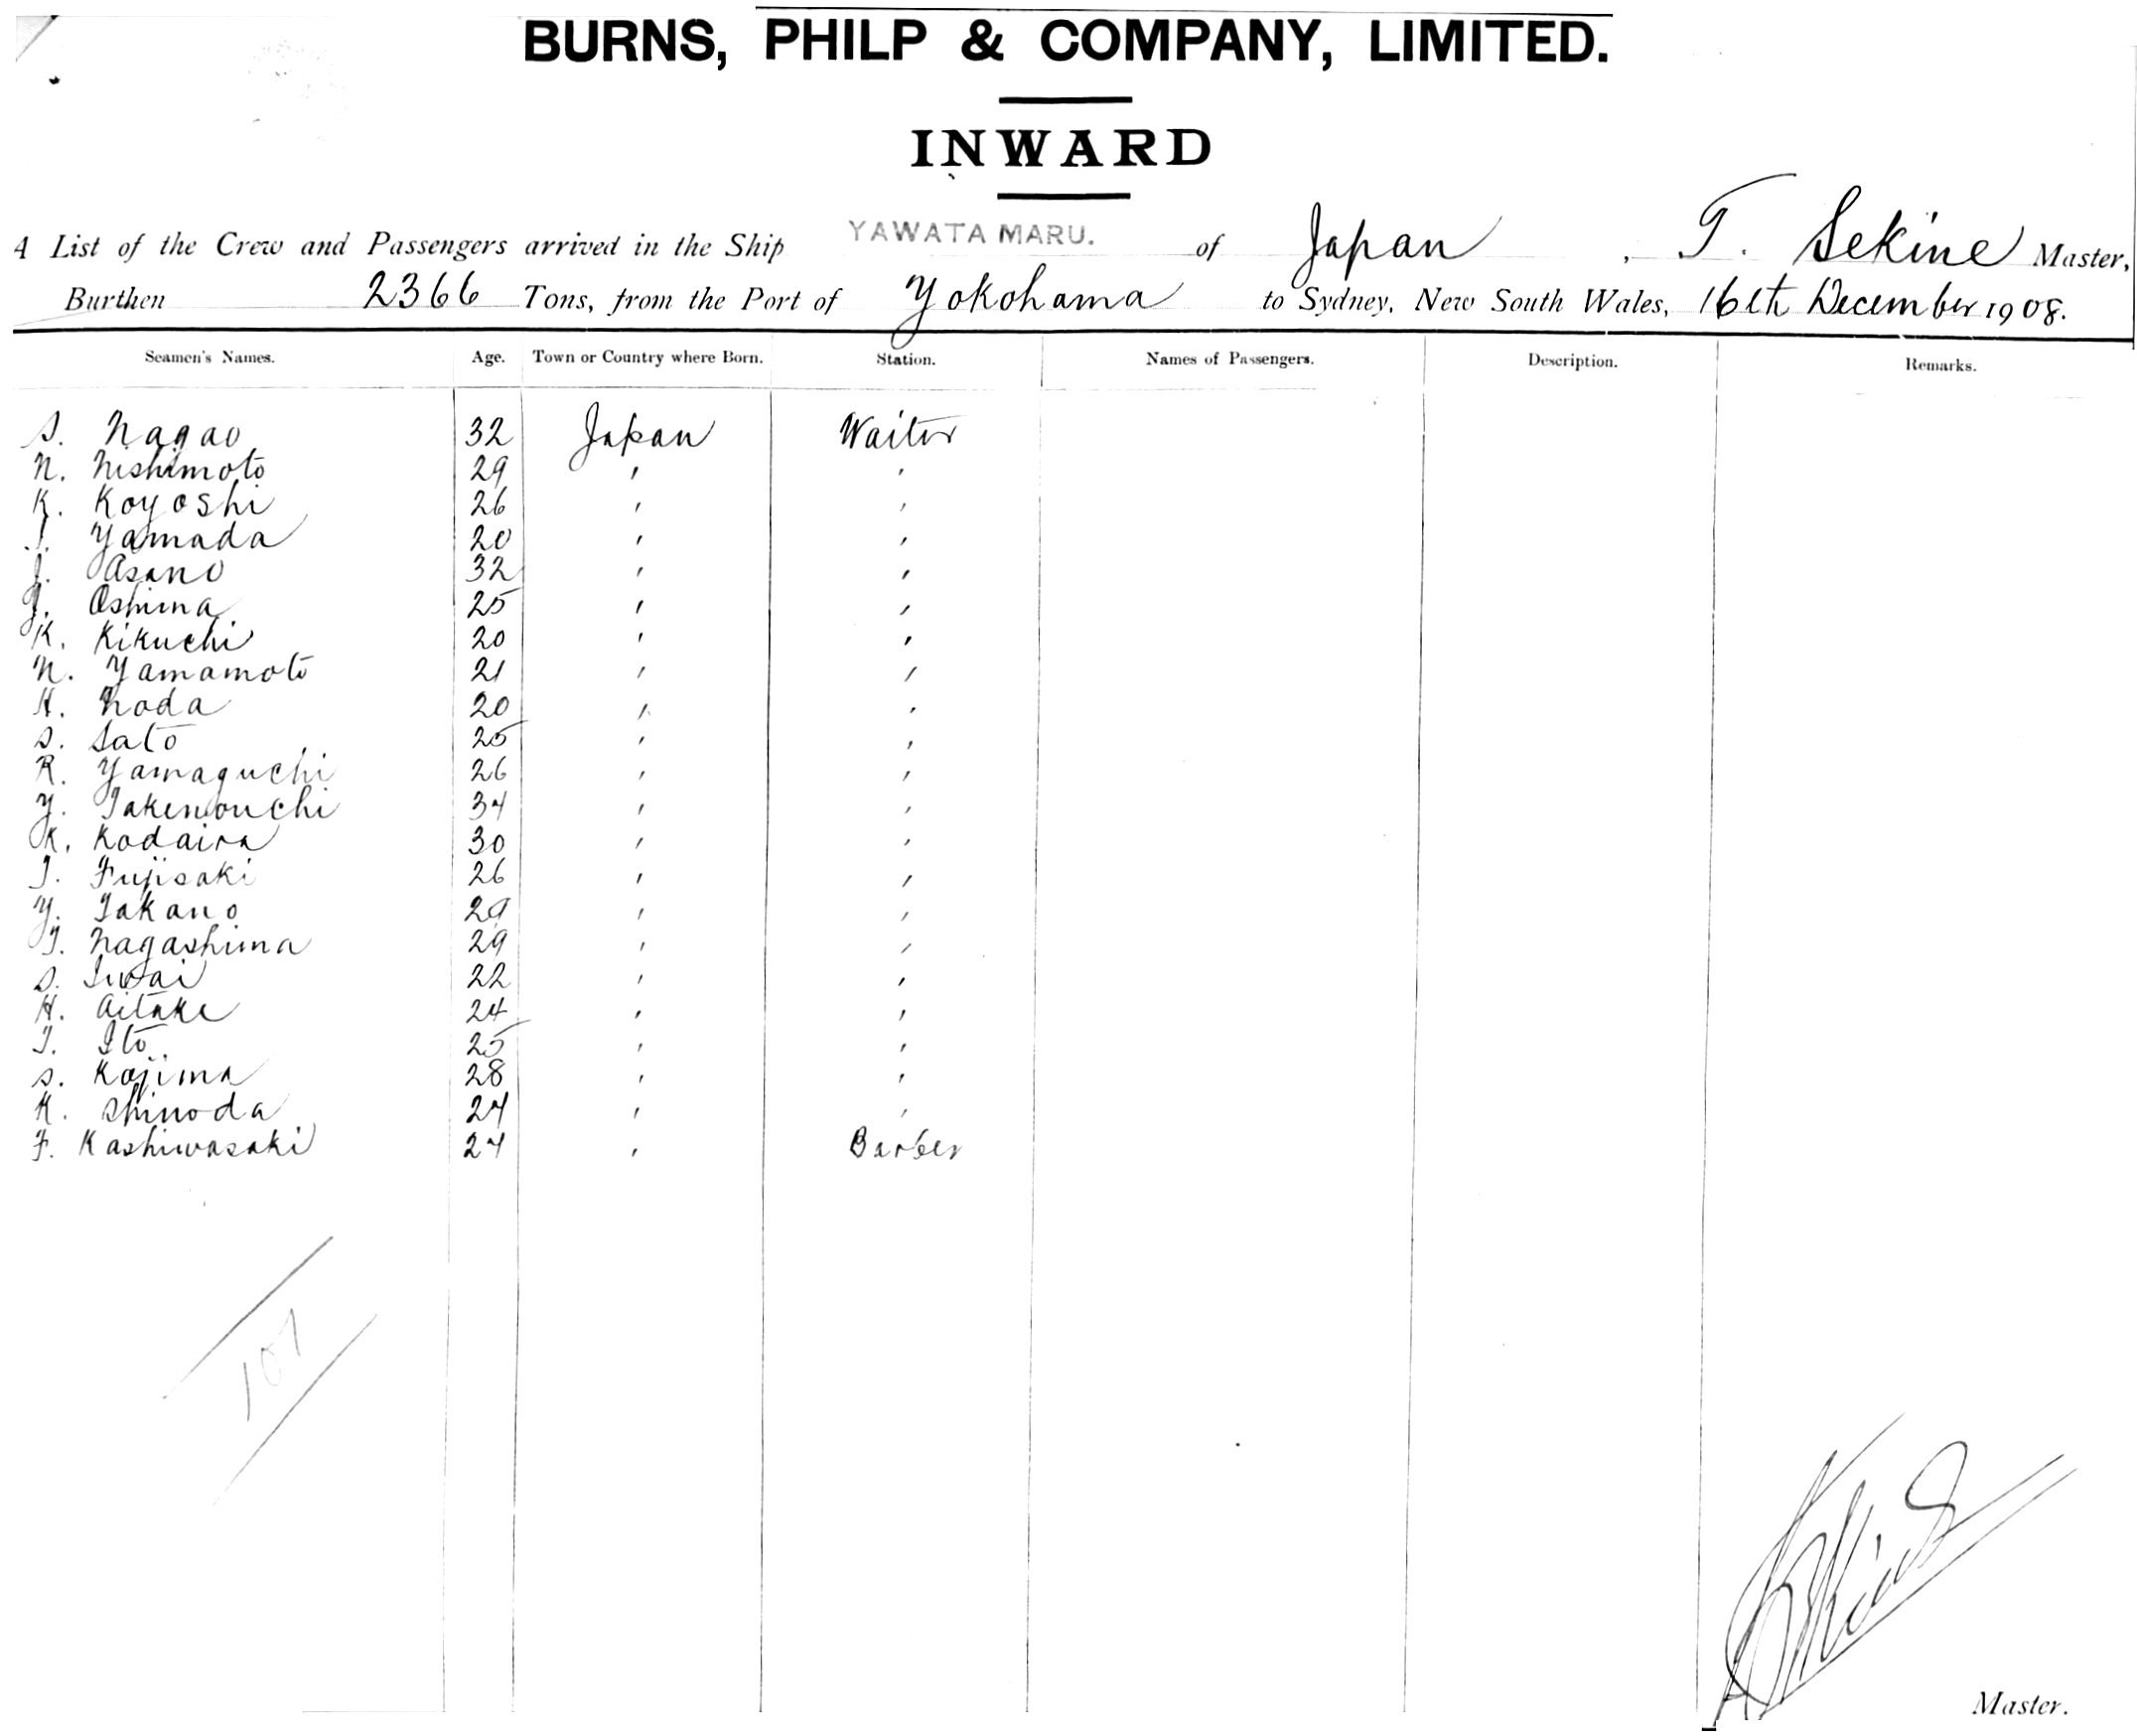 BURNS, PHILP & COMPANY, LIMITED.
INWARD
A List of the Crew and Passengers arrived in the Ship YAWATA MARU. of Japan, T. Sekine Master,
Burthen 2366 Tons, from the Port of Yokohama to Sydney, New South Wales, 16th December 1908.
Seamen's Names. Age. Town or Country where Born. Station. Names of Passengers. Description. Remarks.
S. Nagao 32 Japan Waiter
N. Nishimoto 29 " "
K. Koyoshi 26 " "
Yamada 20 " "
Asano 32 " "
Oshima 25 " "
K. Kikuchi 20 " "
N. Yamamoto 21 " "
H. Noda 20 " "
S. Sato 25 " "
R. Yamaguchi 26 " "
Y. Takenouchi 34 " "
K. Kodaira 30 " "
T. Fujisaki 26 " "
Y. Takano 29 " "
T. Nagashima 29 " "
S. Iwai 22 " "
H. Aitake 24 " "
T. Ito 25 " "
S. Kojima 28 " "
K. Shinoda 24 " "
F. Kashiwasaki 24 " Barber
107
Master.